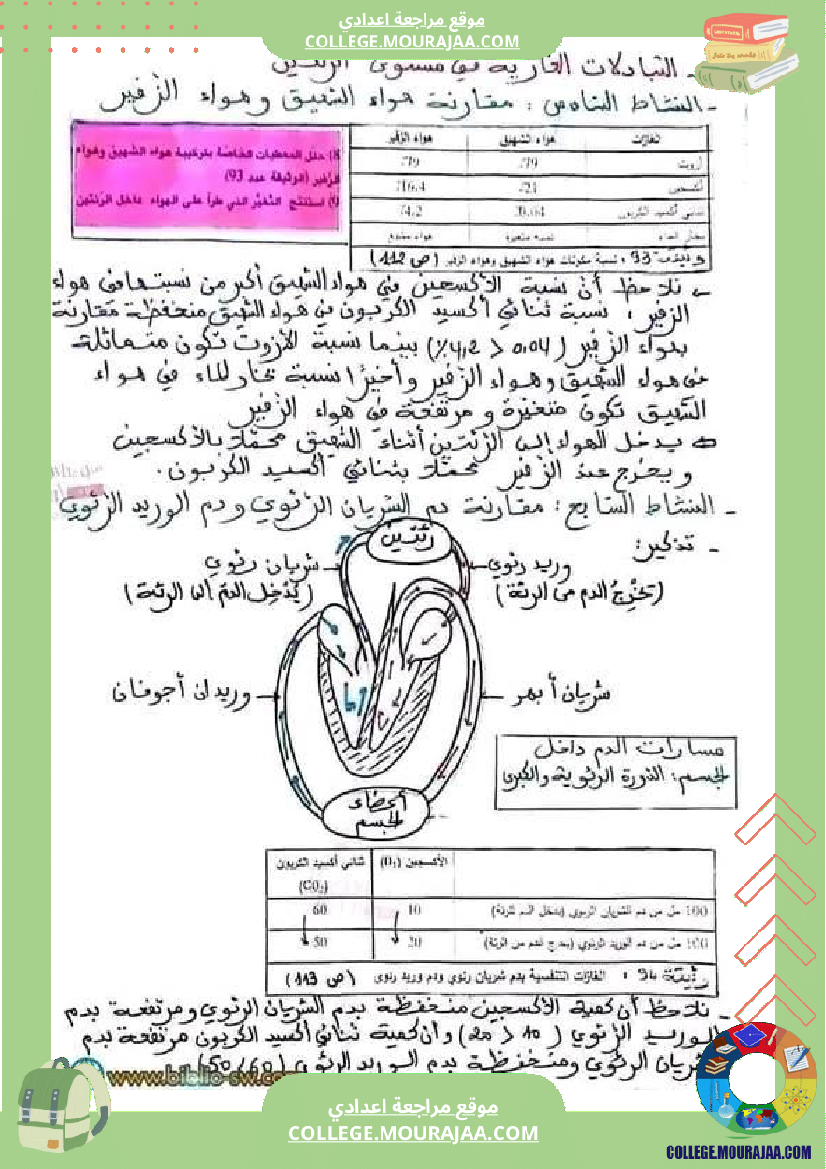 موقع مراجعة اعدادي
COLLEGE.MOURAJAA.COM
- التبادلات الغازية في مستوى الرئتين
- النشاط السادس : مقارنة هواء الشهيق وهواء الزفير
8) حلل المعطيات الخاصة بتركيبة هواء الشهيق وهواء
الزفير (الوثيقة عدد 93)
9) استنتج التغير الذي طرأ على الهواء داخل الرئتين
الغازات هواء الشهيق هواء الزفير
أزوت %79 %79
أكسجين %21 %16.4
ثاني أكسيد الكربون %0.04 %4.2
بخار الماء نسبة متغيرة هواء مشبع
وثيقة 93 : نسبة مكونات هواء الشهيق وهواء الزفير (ص 112)
نلاحظ أن نسبة الأكسجين في هواء الشهيق أكبر من نسبتها في هواء
الزفير ، نسبة ثنائي أكسيد الكربون في هواء الشهيق منخفظة مقارنة
بهواء الزفير (0,04 < 4,2%) بينما نسبة الأزوت تكون متماثلة
في هواء الشهيق وهواء الزفير وأخيرا نسبة بخار الماء في هواء
الشهيق تكون متغيرة و مرتفعة في هواء الزفير
يدخل الهواء إلى الرئتين أثناء الشهيق محملا بالأكسجين
و يخرج عند الزفير محملا بثنائي أكسيد الكربون .
- النشاط السابع : مقارنة دم الشريان الرئوي ودم الوريد الرئوي
- تذكير :
رئتين
شريان رئوي
(يُدْخِل الدم إلى الرئة)
وريد رئوي
(تخْرِجُ الدم من الرئة)
وريدان أجوفان
شريان أبهر
مسارات الدم داخل
الجسم : الدورة الرئوية والكبرى
أعضاء
الجسم
الأكسجين (O₂) ثاني أكسيد الكربون
(CO₂)
100 مل من دم الشريان الرئوي (يدخل الدم للرئة) 10 60
100 مل من دم الوريد الرئوي (يخرج الدم من الرئة) 20 50
وثيقة 94 : الغازات التنفسية بدم شريان رئوي ودم وريد رئوي (ص 113)
- نلاحظ أن كمية الأكسجين منخفظة بدم الشريان الرئوي و مرتفعة بدم
الوريد الرئوي (10 < 20) و أن كمية ثنائي أكسيد الكربون مرتفعة بدم
شريان الرئوي ومنخفظة بدم الوريد الرئوي (60 / 50)
www.biblio-sw.com
موقع مراجعة اعدادي
COLLEGE.MOURAJAA.COM
COLLEGE.MOURAJAA.COM